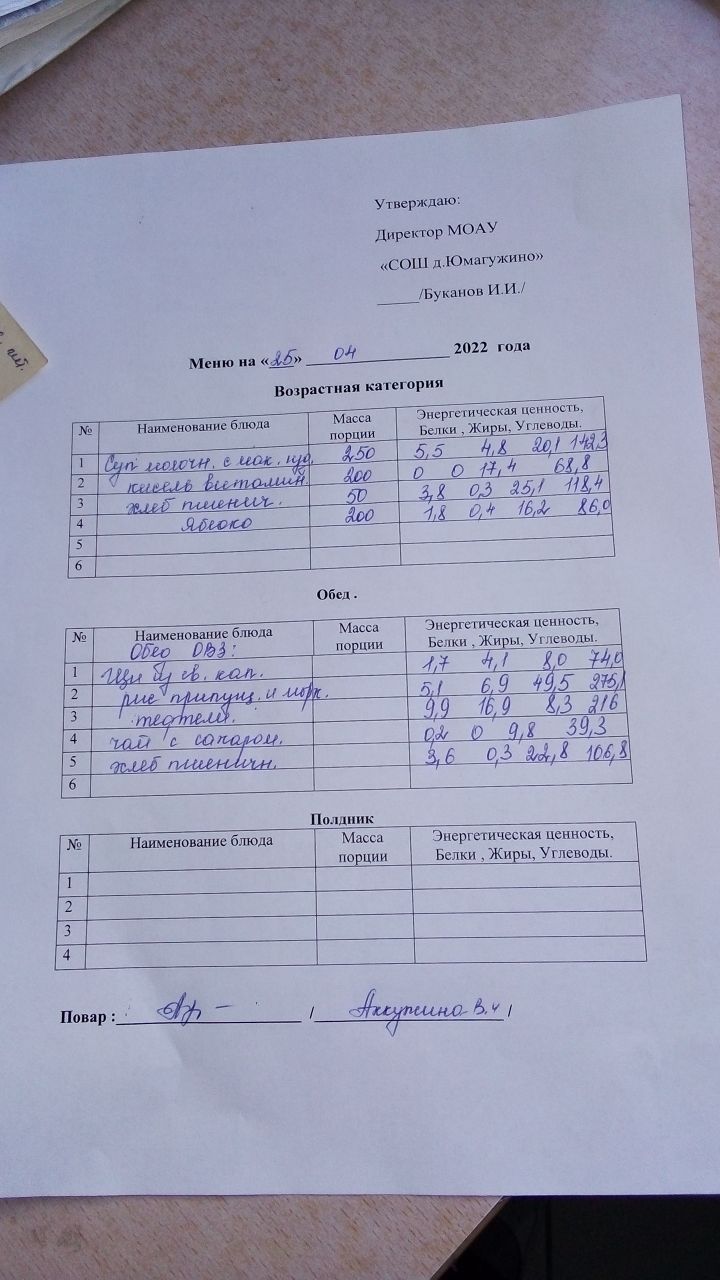 Утверждаю:
Директор МОАУ
«СОШ д.Юмагужино»
______/Буканов И.И./
Меню на «25» 04 2022 года
Возрастная категория
№ Наименование блюда Масса порции Энергетическая ценность, Белки , Жиры, Углеводы.
1 Суп молочн. с мак. изд. 250 5,5 4,8 20,1 142,3
2 кисель витамин. 200 0 0 17,4 68,8
3 хлеб пшенич. 50 3,8 0,3 25,1 118,4
4 Яблоко 200 1,8 0,4 16,2 86,0
5
6
Обед .
№ Наименование блюда Масса порции Энергетическая ценность, Белки , Жиры, Углеводы.
Обед ОВЗ:
1 Щи св. кап. 1,7 4,1 8,0 74,0
2 рис припущ. и морк. 5,1 6,9 49,5 275,1
3 тефтели. 9,9 16,9 8,3 216
4 чай с сахаром. 0,2 0 9,8 39,3
5 хлеб пшеничн. 3,6 0,3 22,8 106,8
6
Полдник
№ Наименование блюда Масса порции Энергетическая ценность, Белки , Жиры, Углеводы.
1
2
3
4
Повар : / Аккужина В. /